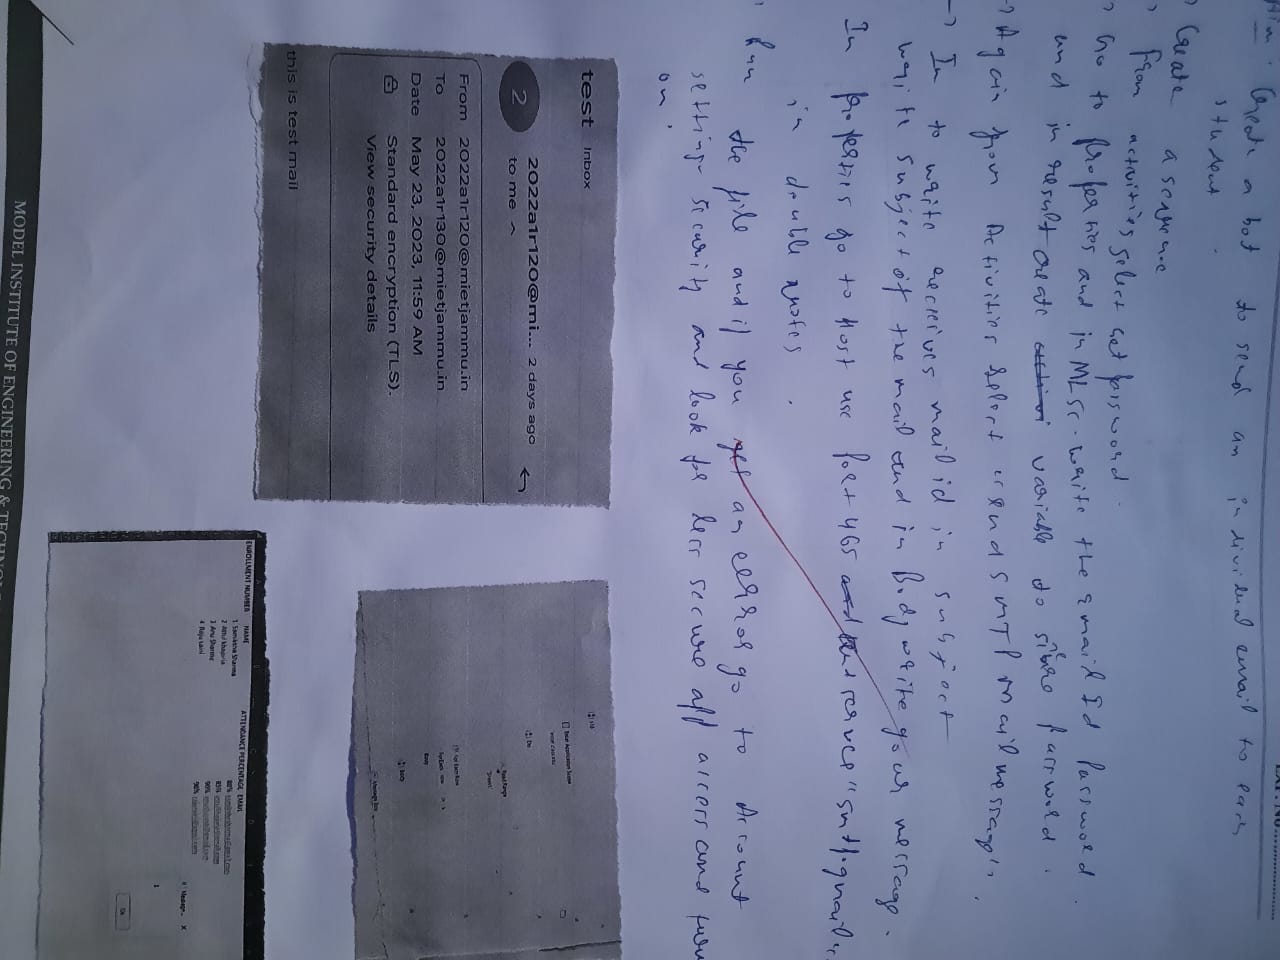 EXP. NO.
Create a bot to send an individual email to each
student.
→ Create a sequence
→ From activities select get password.
→ Go to Properties and in Misc. write the email Id password
and in result create variable to store password.
→ Again from Activities select "send SMTP mail message".
→ In to write receives mail id, in subject
write subject of the mail and in Body write your message.
In properties go to host use Port 465 and the server "smtp.gmail.
in double quotes.
Run the file and if you get an error go to Account
settings security and look for less secure app access and turn
on.
test Inbox
2
2022a1r120@mi... 2 days ago
to me
From 2022a1r120@mietjammu.in
To 2022a1r130@mietjammu.in
Date May 23, 2023, 11:59 AM
Standard encryption (TLS).
View security details
this is test mail
Excel Application Scope
Do
Read Range
For Each Row
Body
Message Box
ENROLLMENT NUMBER NAME ATTENDANCE PERCENTAGE EMAIL
1 Samiksha Sharma 80%
2 85%
3 Anu Sharma 95%
4 90%
Message... X
Ok
MODEL INSTITUTE OF ENGINEERING & TECHNOL